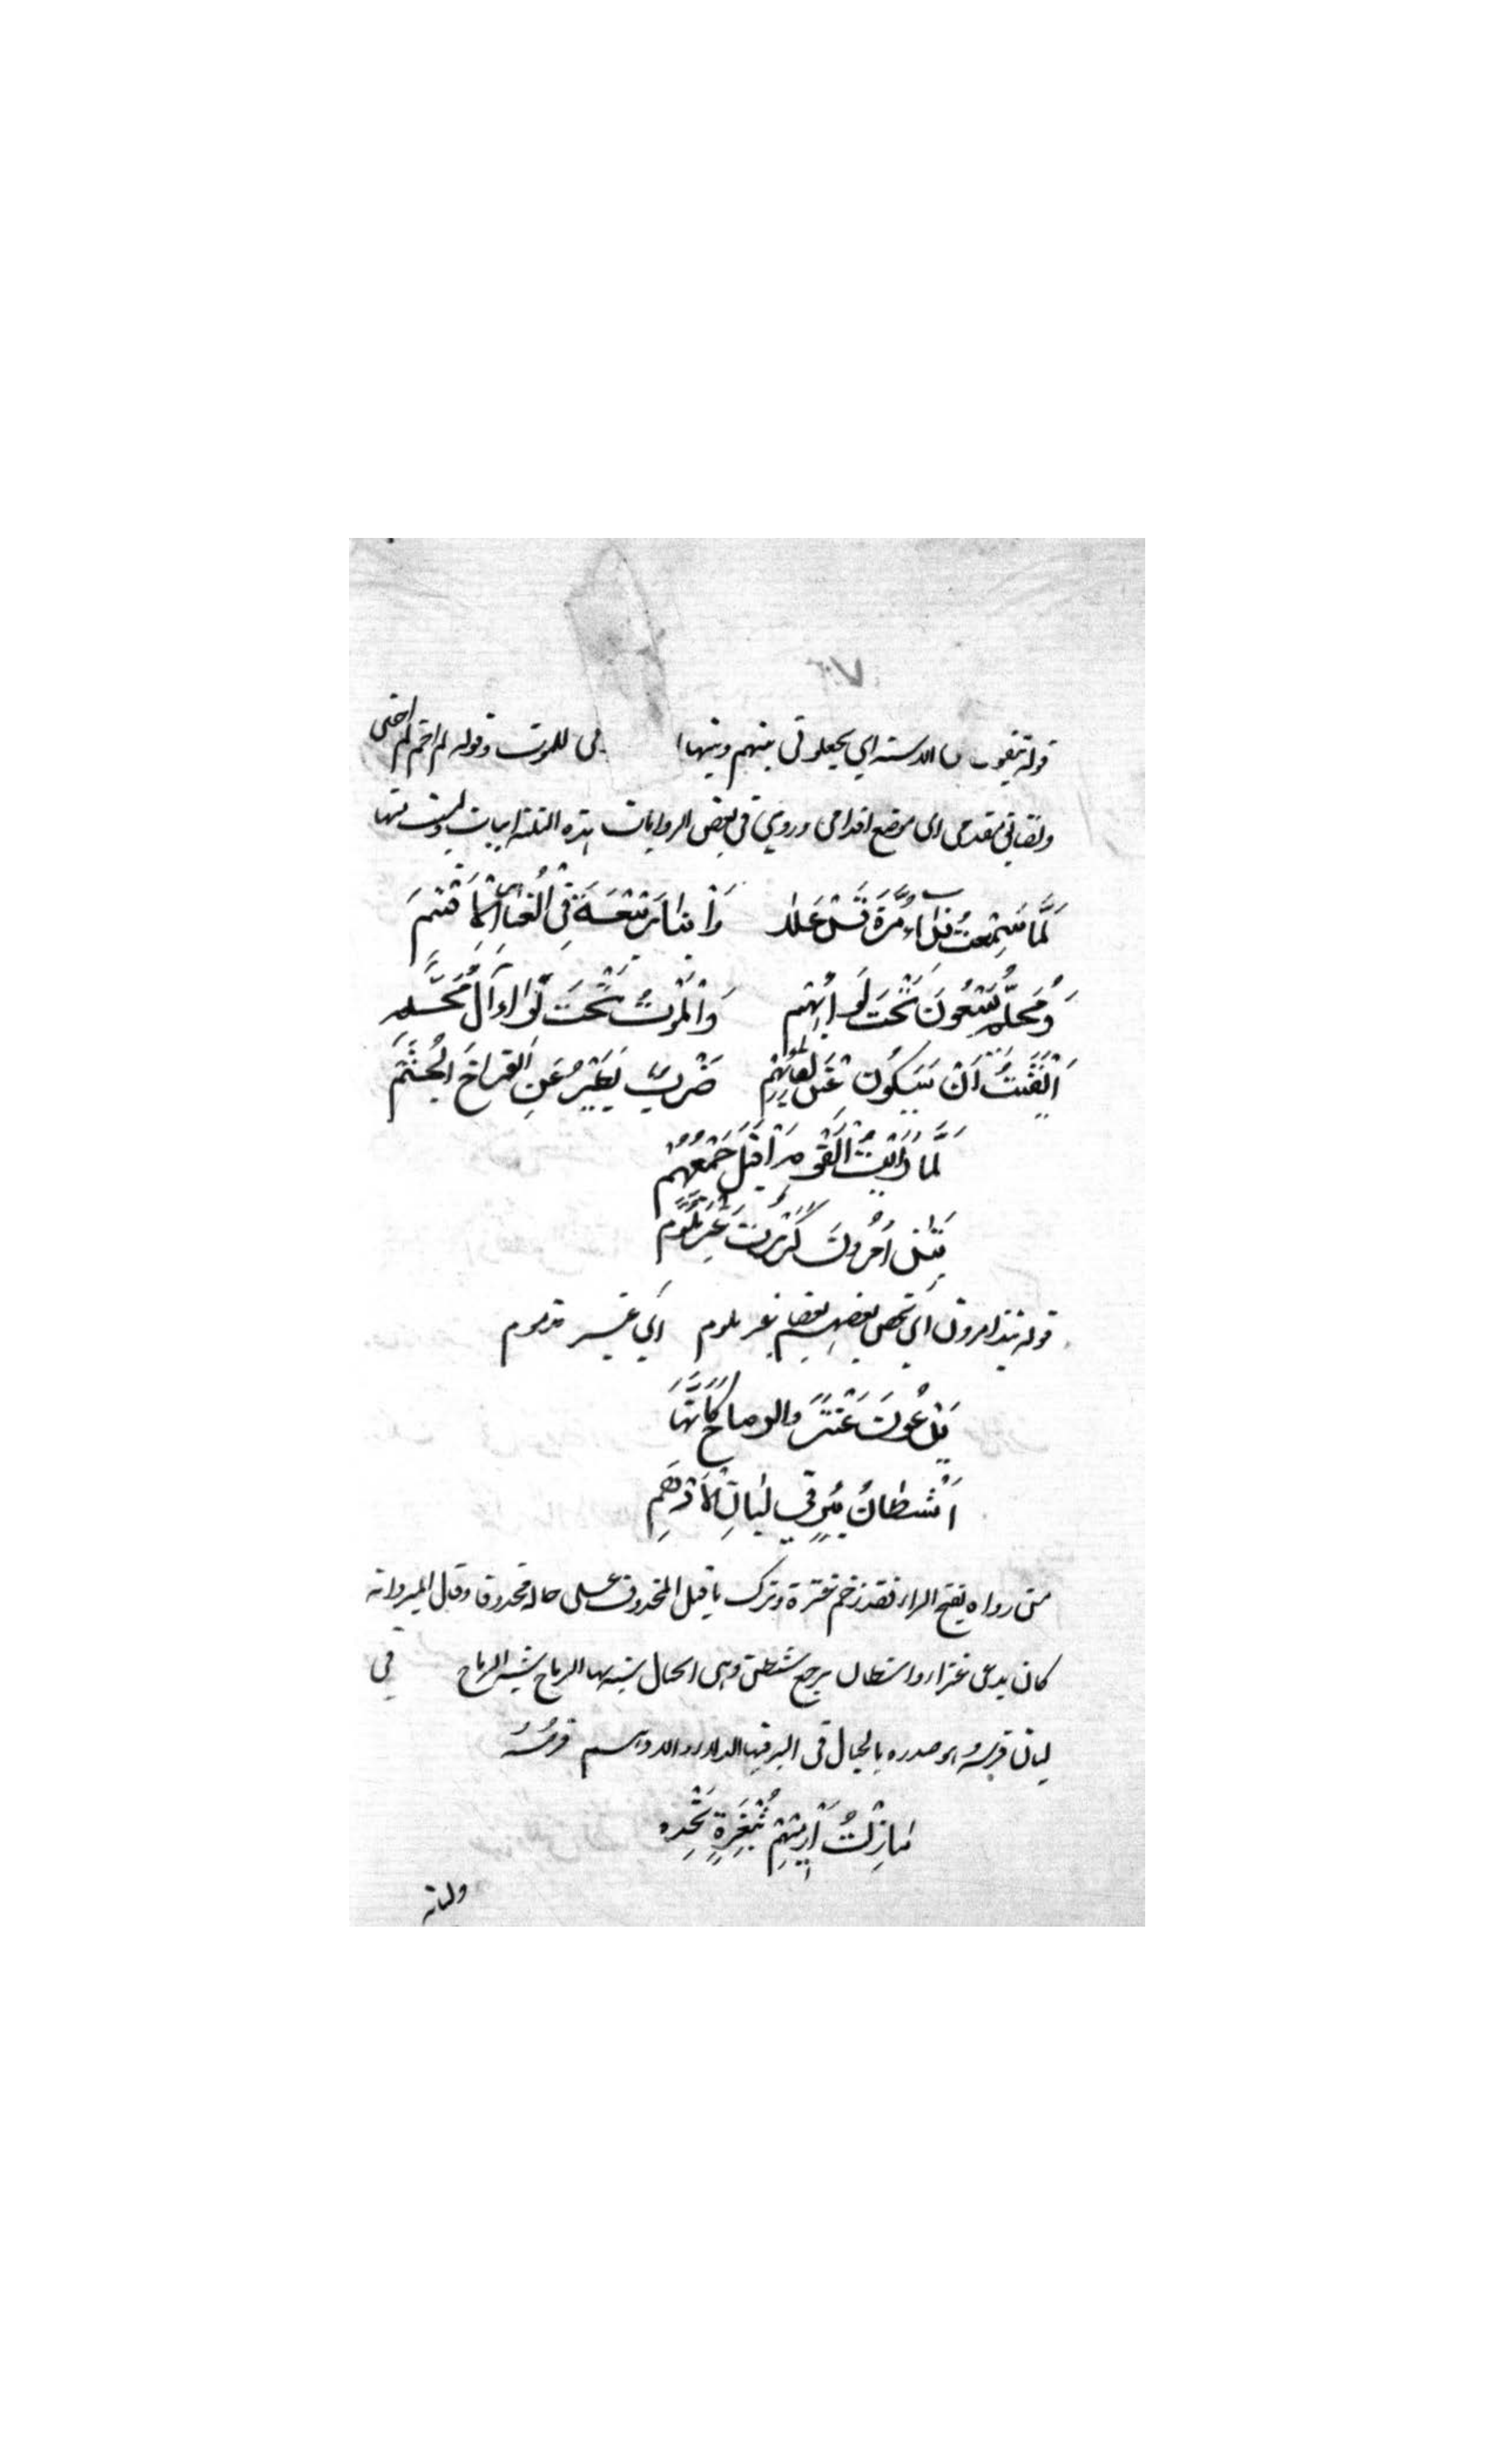 قوله يتقون بي الاسنة اي يجعلوني بينهم وبينها للموت وقوله لم اخم لم اخش
ولقياني مقدمي اى موضع اقدامي وروي في بعض الروايات هذه الثلثة ابيات وليست منها
لَمَّا سَمِعْتُ نِدَاءَ مُرَّةَ قَدْ عَلَا وَابْنَا رَبِيعَةَ فِي الْغُبَارِ الْأَقْتَمِ
وَمُحَلَّمٌ يَسْعَوْنَ تَحْتَ لِوَائِهِمْ وَالْمَوْتُ تَحْتَ لِوَاءِ آلِ مُحَلَّمِ
اَيْقَنْتُ اَنْ سَيَكُونُ عِنْدَ لِقَائِهِمْ ضَرْبٌ يَطِيرُ عَنِ الْفِرَاخِ الْجُثَّمِ
لَمَّا رَأَيْتُ الْقَوْمَ اَقْبَلَ جَمْعُهُمْ
يَتَذَامَرُونَ كَرَرْتُ غَيْرَ مُذَمَّمِ
قوله يتذامرون اي يحض بعضهم بعضا غير ملوم اي غير مذموم
يَدْعُونَ عَنْتَرَ وَالرِّمَاحُ كَأَنَّهَا
اَشْطَانُ بِئْرٍ فِي لَبَانِ الْأَدْهَمِ
من رواه بفتح الراء فقد رخم عنترة وترك ما قبل المحذوف على حاله محذوفا وقال المبرد انه
كان يدعى عنترا واشطان جمع شطن وهى الحبال شبه بها الرماح شبه الرماح في
لبان فرسه وهو صدره بالحبال في البير فيها الدلاء والادهم فرسه
مَا زِلْتُ أَرْمِيهِمْ بِثُغْرَةِ نَحْرِهِ
ولبانه